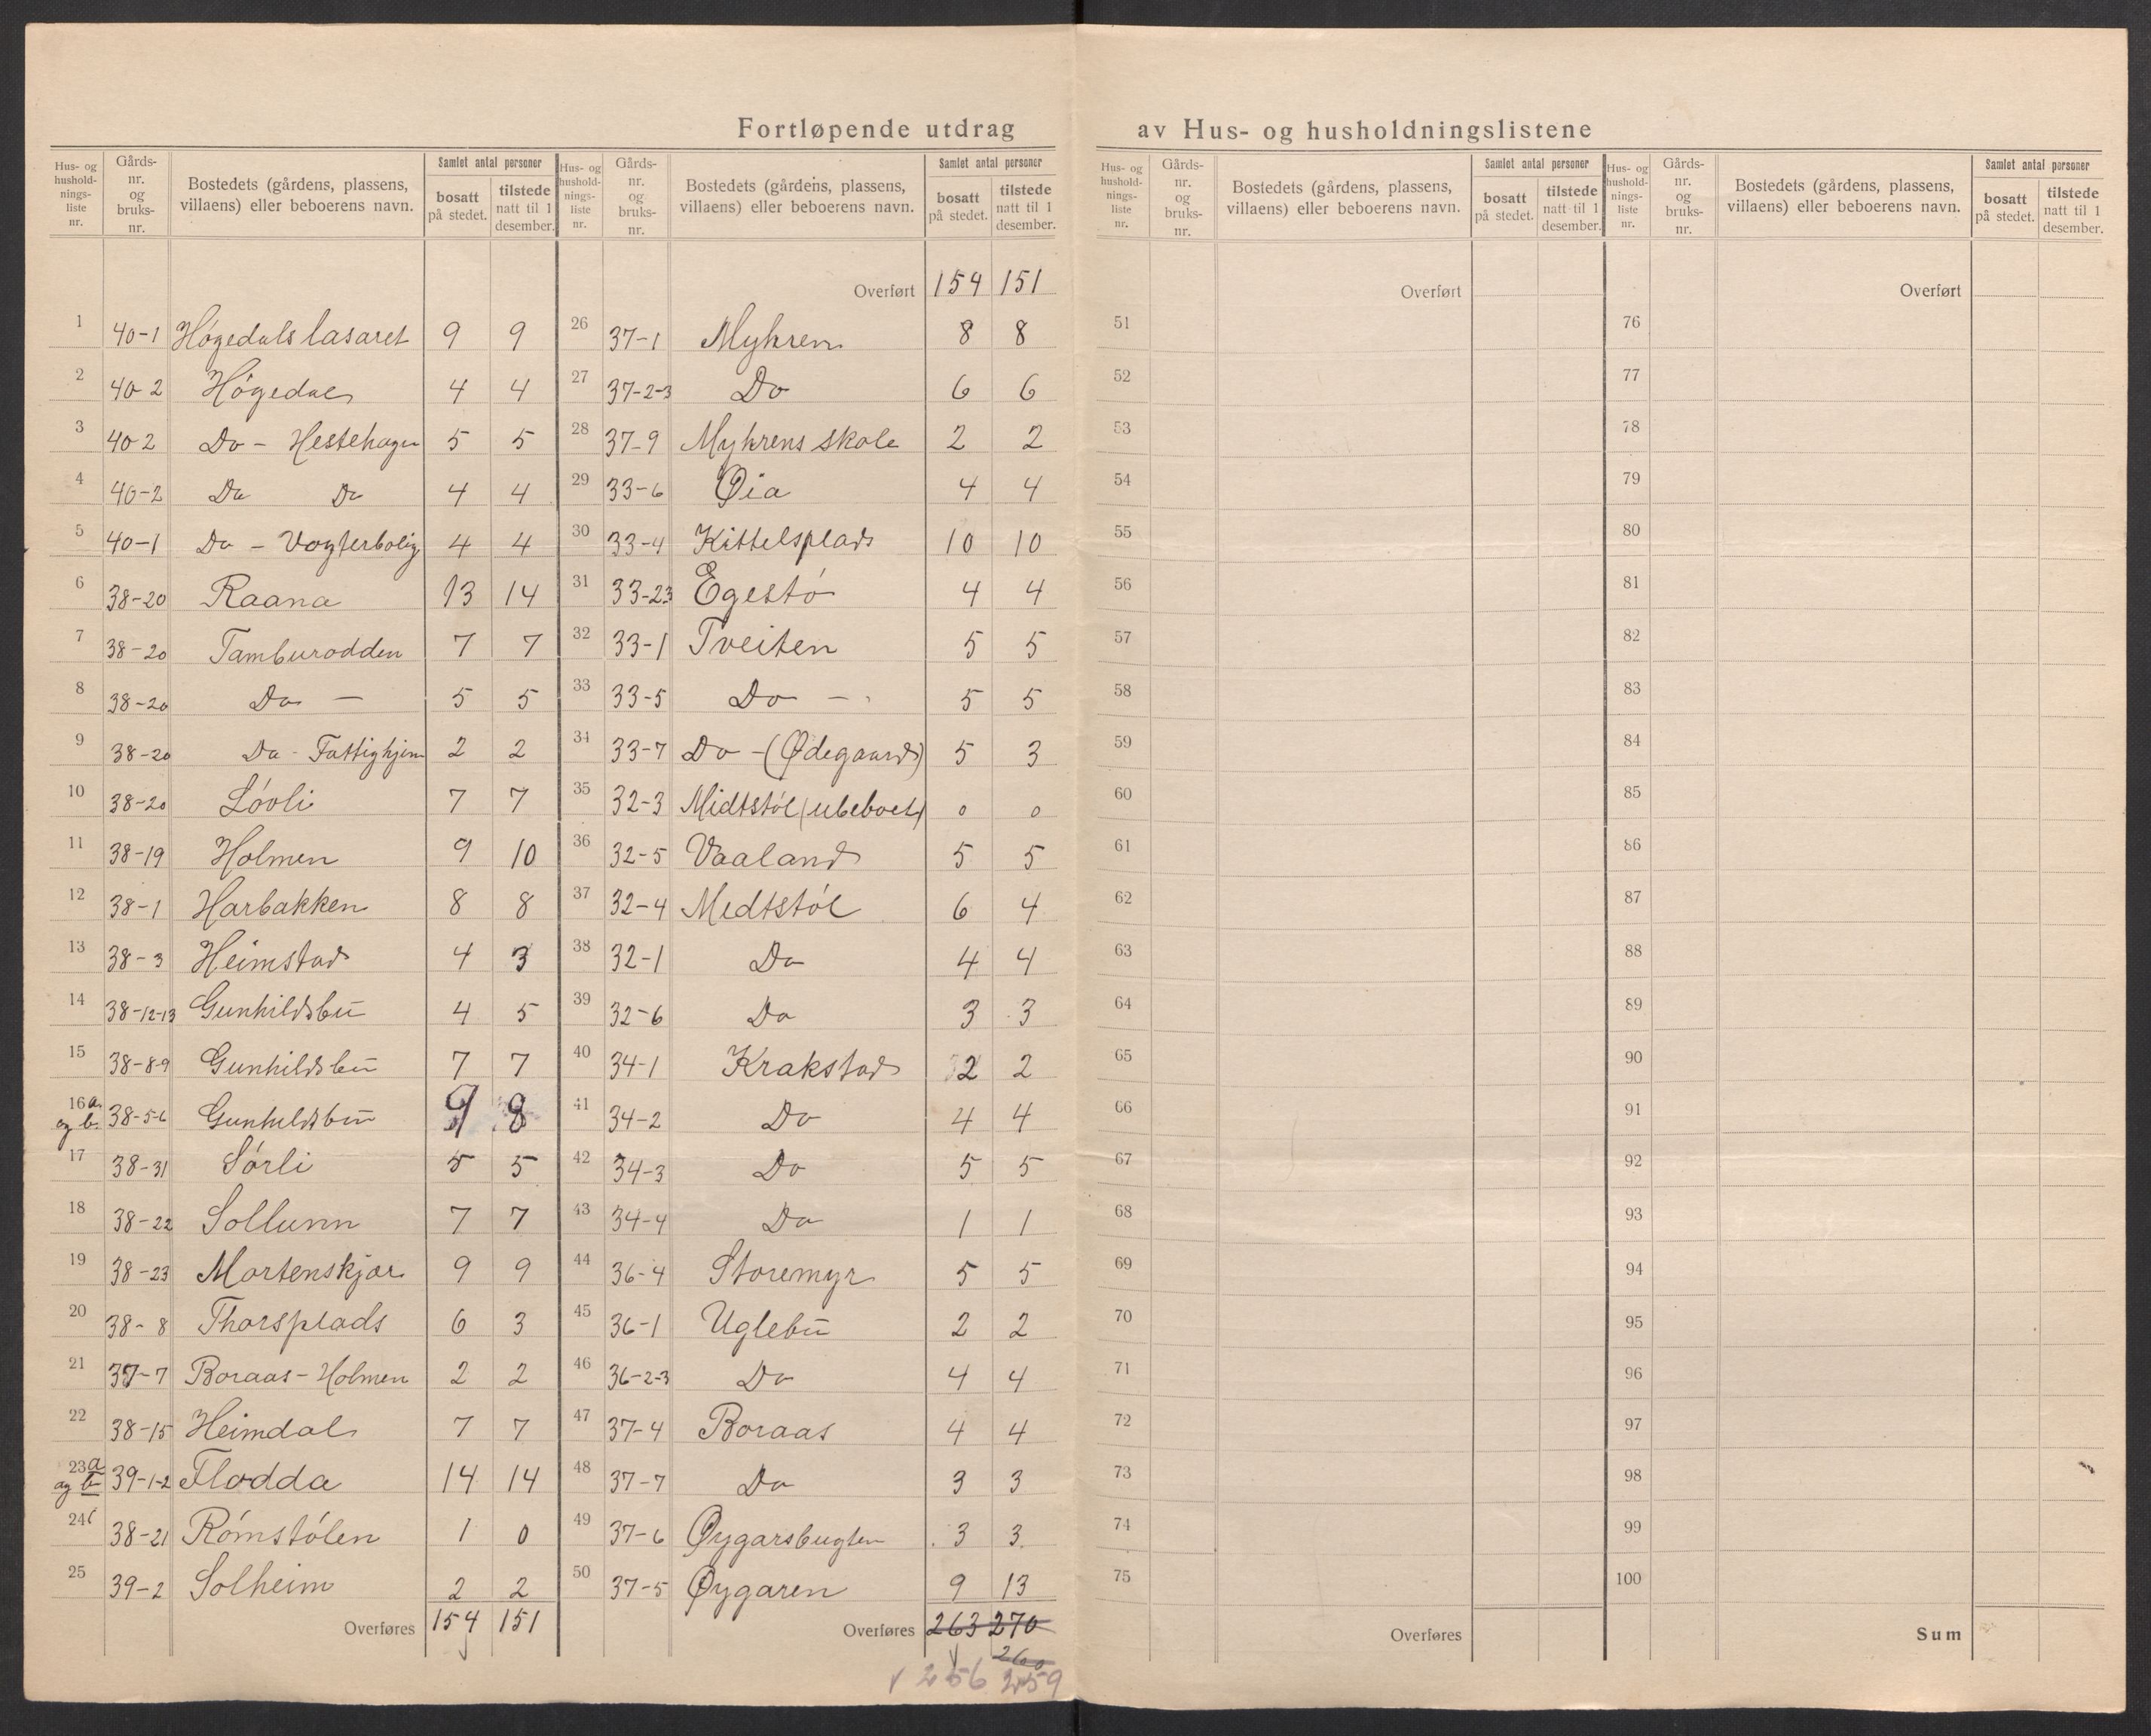 Fortløpende utdrag av Hus- og husholdningslistene
Hus- og husholdnings- liste nr. | Gårds- nr. og bruks- nr. | Bostedets (gårdens, plassens, villaens) eller beboerens navn. | Samlet antal personer | bosatt på stedet. | tilstede natt til 1 desember.
1 40-1 Høgedals lasaret 9 9
2 40-2 Høgedal 4 4
3 40-2 Do - Hestehagen 5 5
4 40-2 Do Do 4 4
5 40-1 Do - Vogterbolig 4 4
6 38-20 Raana 13 14
7 38-20 Tamburodden 7 7
8 38-20 Do — 5 5
9 38-20 Do - Fattighjem 2 2
10 38-20 Lóvli 7 7
11 38-19 Holmen 9 10
12 38-1 Harbakken 8 8
13 38-3 Heimstad 4 3
14 38-12-13 Gunhildsbu 4 5
15 38-8-9 Gunhildsbu 7 7
16 a og b. 38-5-6 Gunhildsbu 9 8
17 38-31 Sórli 5 5
18 38-22 Sollunn 7 7
19 38-23 Mortenskjær 9 9
20 38-8 Thorsplads 6 3
21 37-7 Boraas - Holmen 2 2
22 38-15 Heimdal 7 7
23 a og b 39-1-2 Flodda 14 14
24 38-21 Rómstólen 1 0
25 39-2 Solheim 2 2
Overføres 154 151
Hus- og hushold- nings- liste nr. | Gårds- nr. og bruks- nr. | Bostedets (gårdens, plassens, villaens) eller beboerens navn. | Samlet antal personer | bosatt på stedet. | tilstede natt til 1 desember.
Overført 154 151
26 37-1 Myhren 8 8
27 37-2-3 Do 6 6
28 37-9 Myhrens skole 2 2
29 33-6 Øia 4 4
30 33-4 Kittelsplads 10 10
31 33-23 Egestó 4 4
32 33-1 Tveiten 5 5
33 33-5 Do — 5 5
34 33-7 Do - (Ødegaard) 5 3
35 32-3 Midtstól (ubeboet) 0 0
36 32-5 Vaaland 5 5
37 32-4 Medtstól 6 4
38 32-1 Do 4 4
39 32-6 Do 3 3
40 34-1 Krakstad 2 2
41 34-2 Do 4 4
42 34-3 Do 5 5
43 34-4 Do 1 1
44 36-4 Storemyr 5 5
45 36-1 Uglebu 2 2
46 36-2-3 Do 4 4
47 37-4 Boraas 4 4
48 37-7 Do 3 3
49 37-6 Øygarsbugten 3 3
50 37-5 Øygaren 9 13
Overføres 263 270
260
v 256 259
Hus- og hushold- nings- liste nr. | Gårds- nr. og bruks- nr. | Bostedets (gårdens, plassens, villaens) eller beboerens navn. | Samlet antal personer | bosatt på stedet. | tilstede natt til 1 desember.
Overført
51
52
53
54
55
56
57
58
59
60
61
62
63
64
65
66
67
68
69
70
71
72
73
74
75
Overføres
Hus- og hushold- nings- liste nr. | Gårds- nr. og bruks- nr. | Bostedets (gårdens, plassens, villaens) eller beboerens navn. | Samlet antal personer | bosatt på stedet. | tilstede natt til 1 desember.
Overført
76
77
78
79
80
81
82
83
84
85
86
87
88
89
90
91
92
93
94
95
96
97
98
99
100
Sum